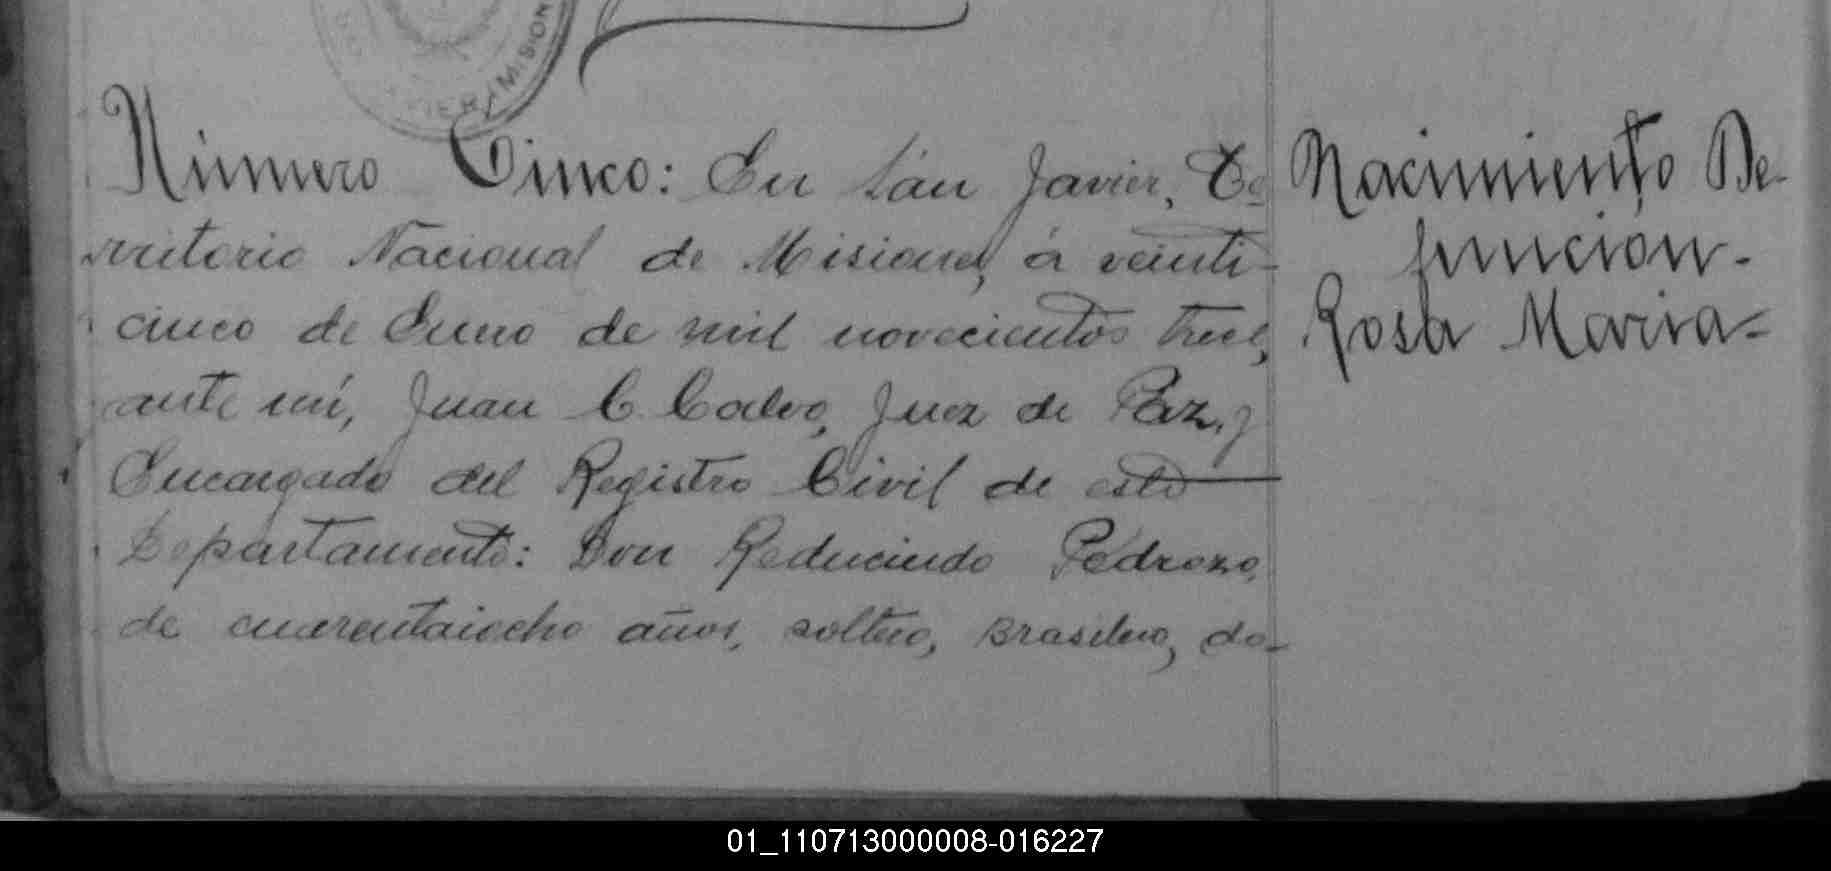 MISION
Número Cinco: En San Javier, Te
rritorio Nacional de Misiones, á veinti-
cinco de Enero de mil novecientos tres,
ante mí, Juan C. Calvo, Juez de Paz, y
Encargado del Registro Civil de este
Departamento: Don Reducindo Pedrozo,
de cuarentaiocho años, soltero, Brasilero, do-
Nacimiento De-
función-
Rosa Maria-
01_110713000008-016227